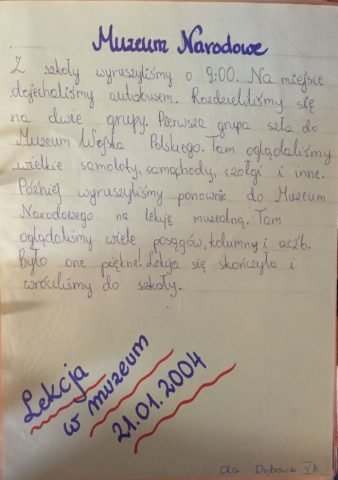 Muzeum Narodowe
Z szkoły wyruszyliśmy o 9:00. Na miejsce
dojechaliśmy autobusem. Rozdzieliliśmy się
na dwie grupy. Pierwsza grupa szła do
Muzeum Wojska Polskiego. Tam oglądaliśmy
wielkie samoloty, samochody, czołgi i inne.
Później wyruszyliśmy ponownie do Muzeum
Narodowego na lekcję muzealną. Tam
oglądaliśmy wiele posągów, kolumny i rzeźb.
Było one piękne. Lekcja się skończyła i
wróciliśmy do szkoły.
Lekcja
w muzeum
21.01.2004
Dąbrowa V b